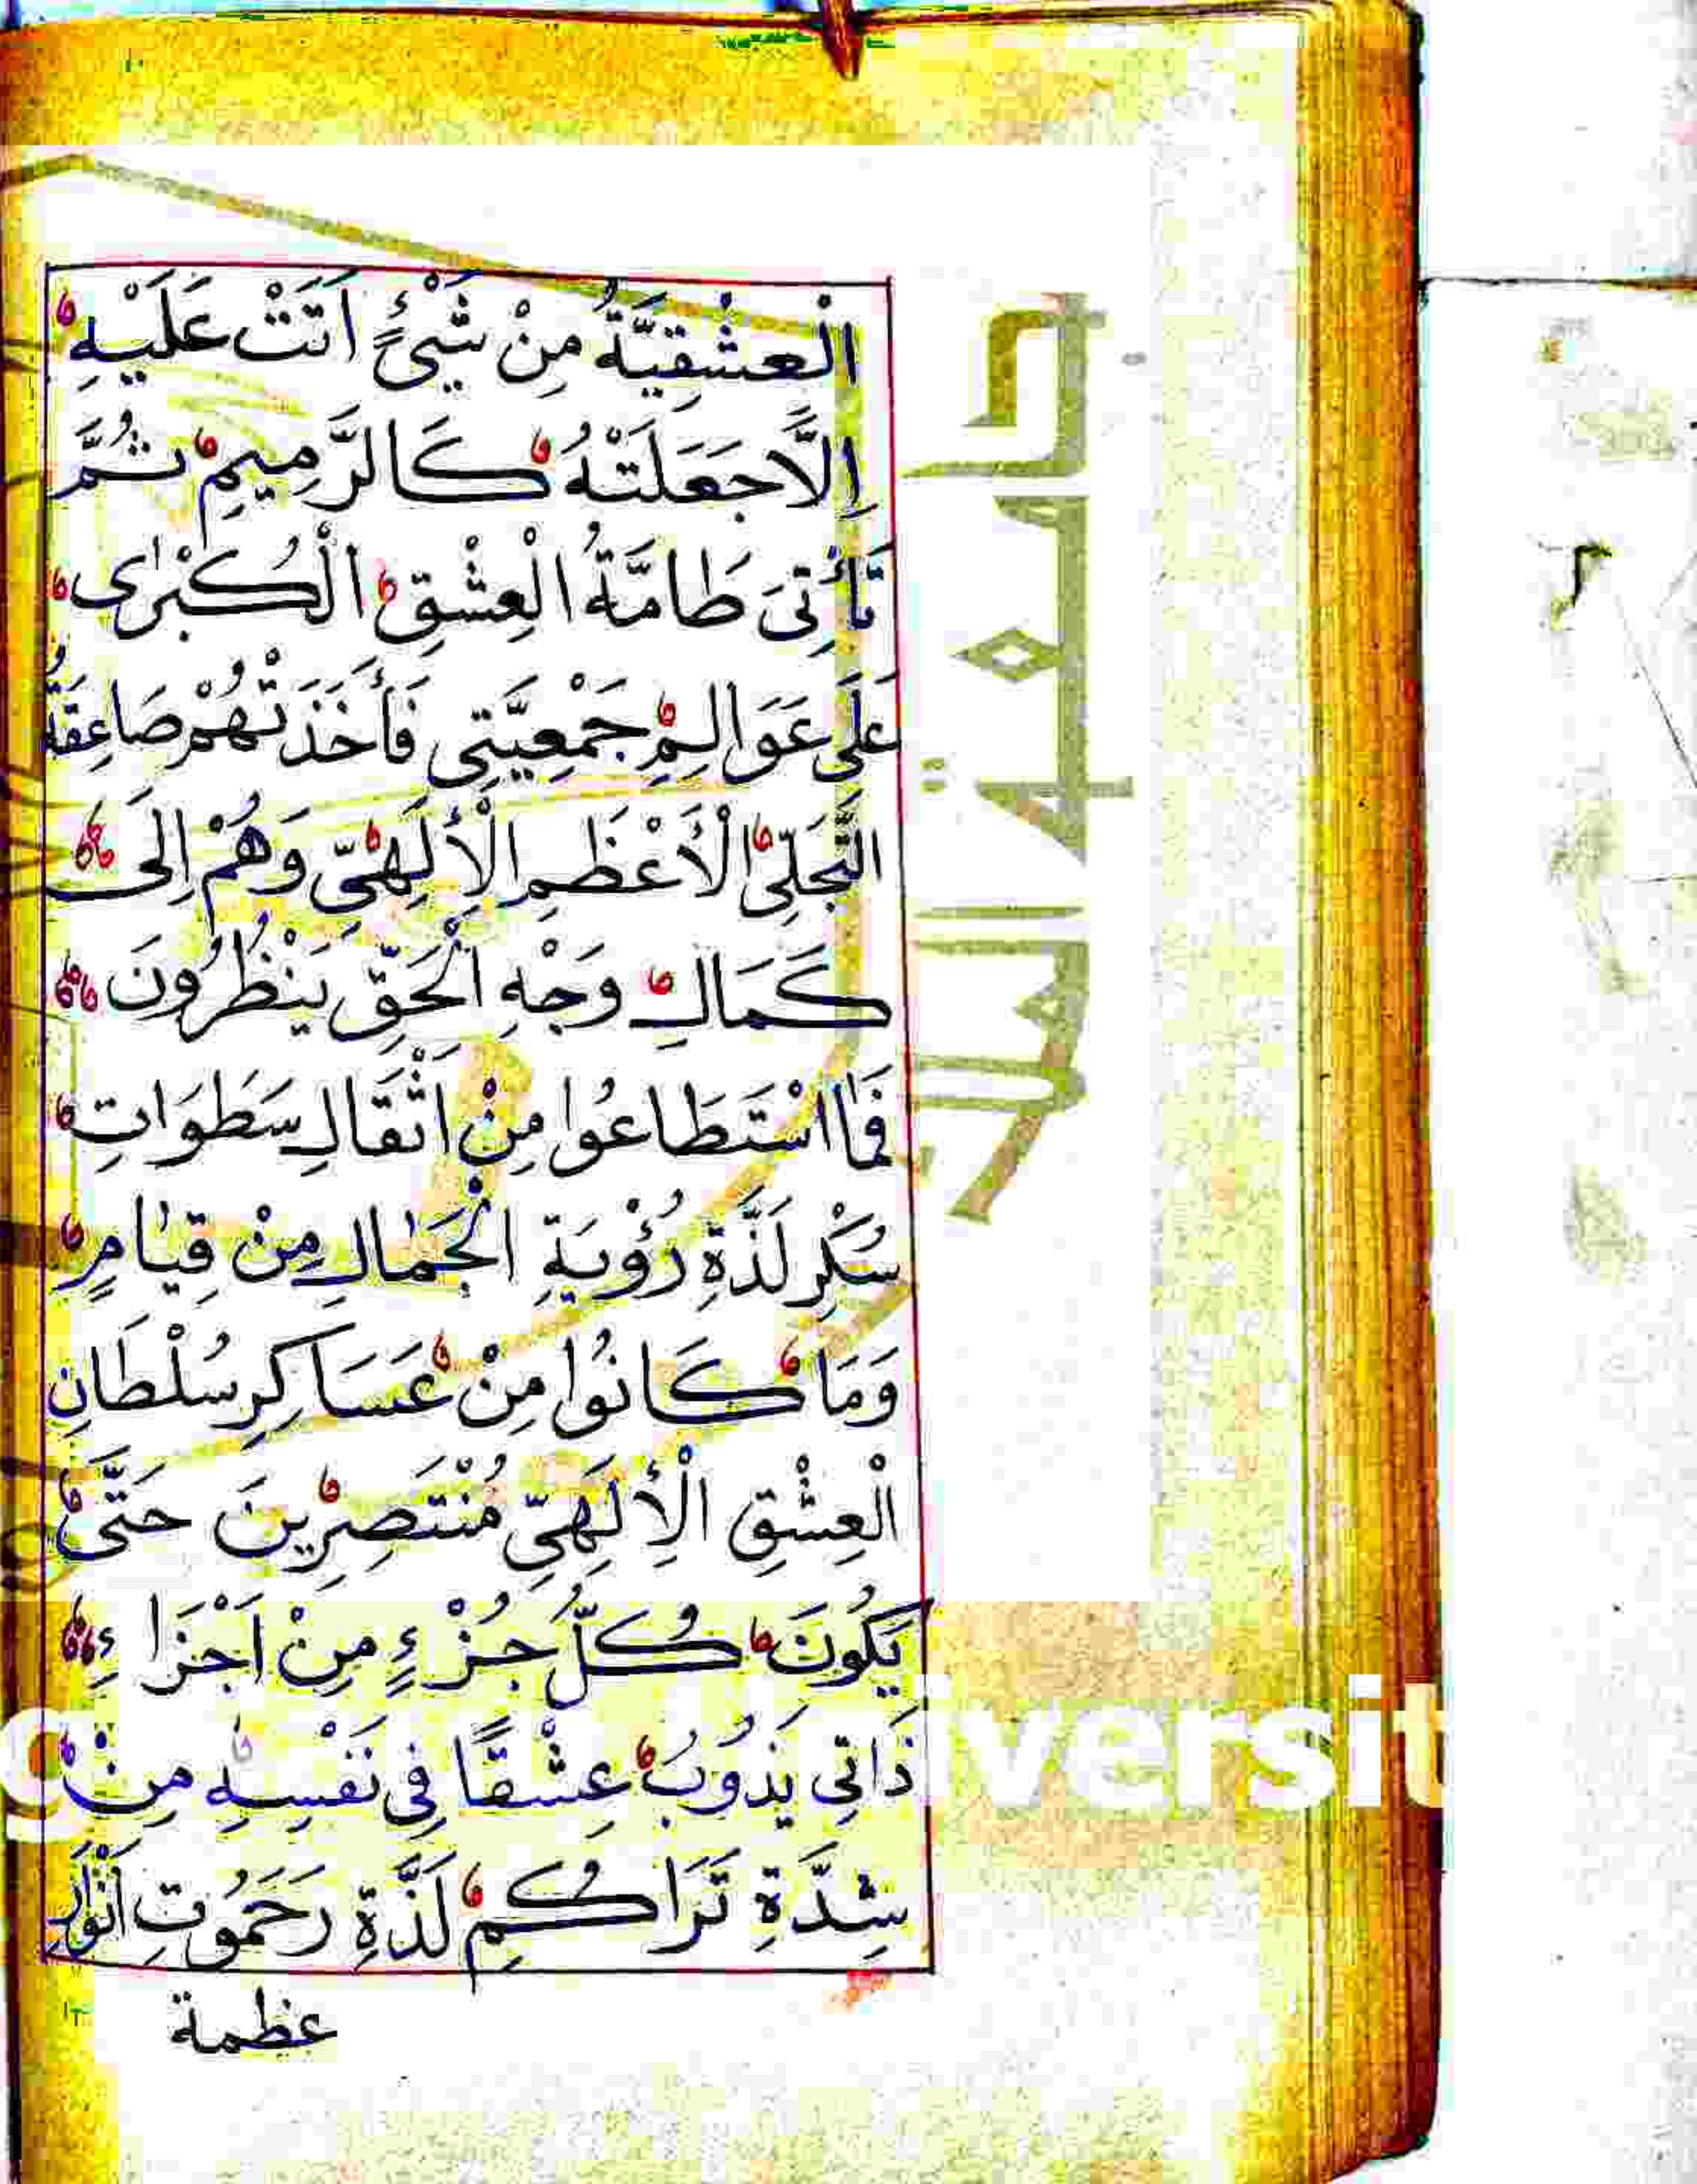 الْعِشْقِيَّةُ مِنْ شَيْئٍ اَتَتْ عَلَيْهِ
اِلَّا جَعَلَتْهُ كَالرَّمِيمِ ثُمَّ
تَأْتِىَ طَامَّةُ الْعِشْقِ الْكُبْرٰى
عَلَى عَوَالِمِ جَمْعِيَّتِى فَأَخَذَتْهُمْ صَاعِقَةُ
التَّجَلِّىِ الْأَعْظَمِ الْأِلَهِىِّ وَهُمْ اِلَى
كَمَالِ وَجْهِ الْحَقِّ يَنْظُرُونَ
فَمَا اسْتَطَاعُوا مِنْ اَثْقَالِ سَطَوَاتِ
سُكْرِ لَذَّةِ رُؤْيَةِ الْجَمَالِ مِنْ قِيَامٍ
وَمَا كَانُوا مِنْ عَسَاكِرِ سُلْطَانِ
الْعِشْقِ الْأِلَهِىِّ مُنْتَصِرِينَ حَتَّى
يَكُونَ كُلُّ جُزْءٍ مِنْ اَجْزَاءِ
ذَاتِى يَذُوبُ عِشْقًا فِى نَفْسِهِ مِنْ
شِدَّةِ تَرَاكُمِ لَذَّةِ رَحَمُوتِ اَنْوَارِ
عظمة
جامعة الملك
iversit